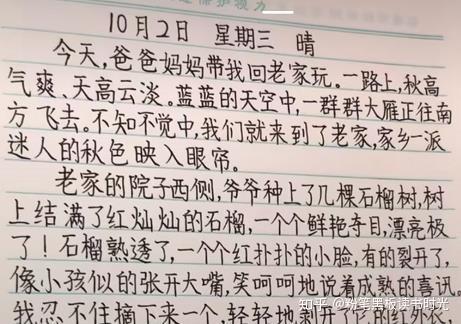 10月2日 星期三 晴
今天,爸爸妈妈带我回老家玩。一路上,秋高
气爽、天高云淡。蓝蓝的天空中,一群群大雁正往南
方飞去。不知不觉中,我们就来到了老家,家乡一派
迷人的秋色映入眼帘。
老家的院子西侧,爷爷种上了几棵石榴树,树
上结满了红灿灿的石榴,一个个鲜艳夺目,漂亮极
了!石榴熟透了,一个个红扑扑的小脸,有的裂开了,
像小孩似的张开大嘴,笑呵呵地说着成熟的喜讯。
我忍不住摘下来一个,轻轻地剥开了它的红外衣,
知乎 @粉笔黑板读书时光